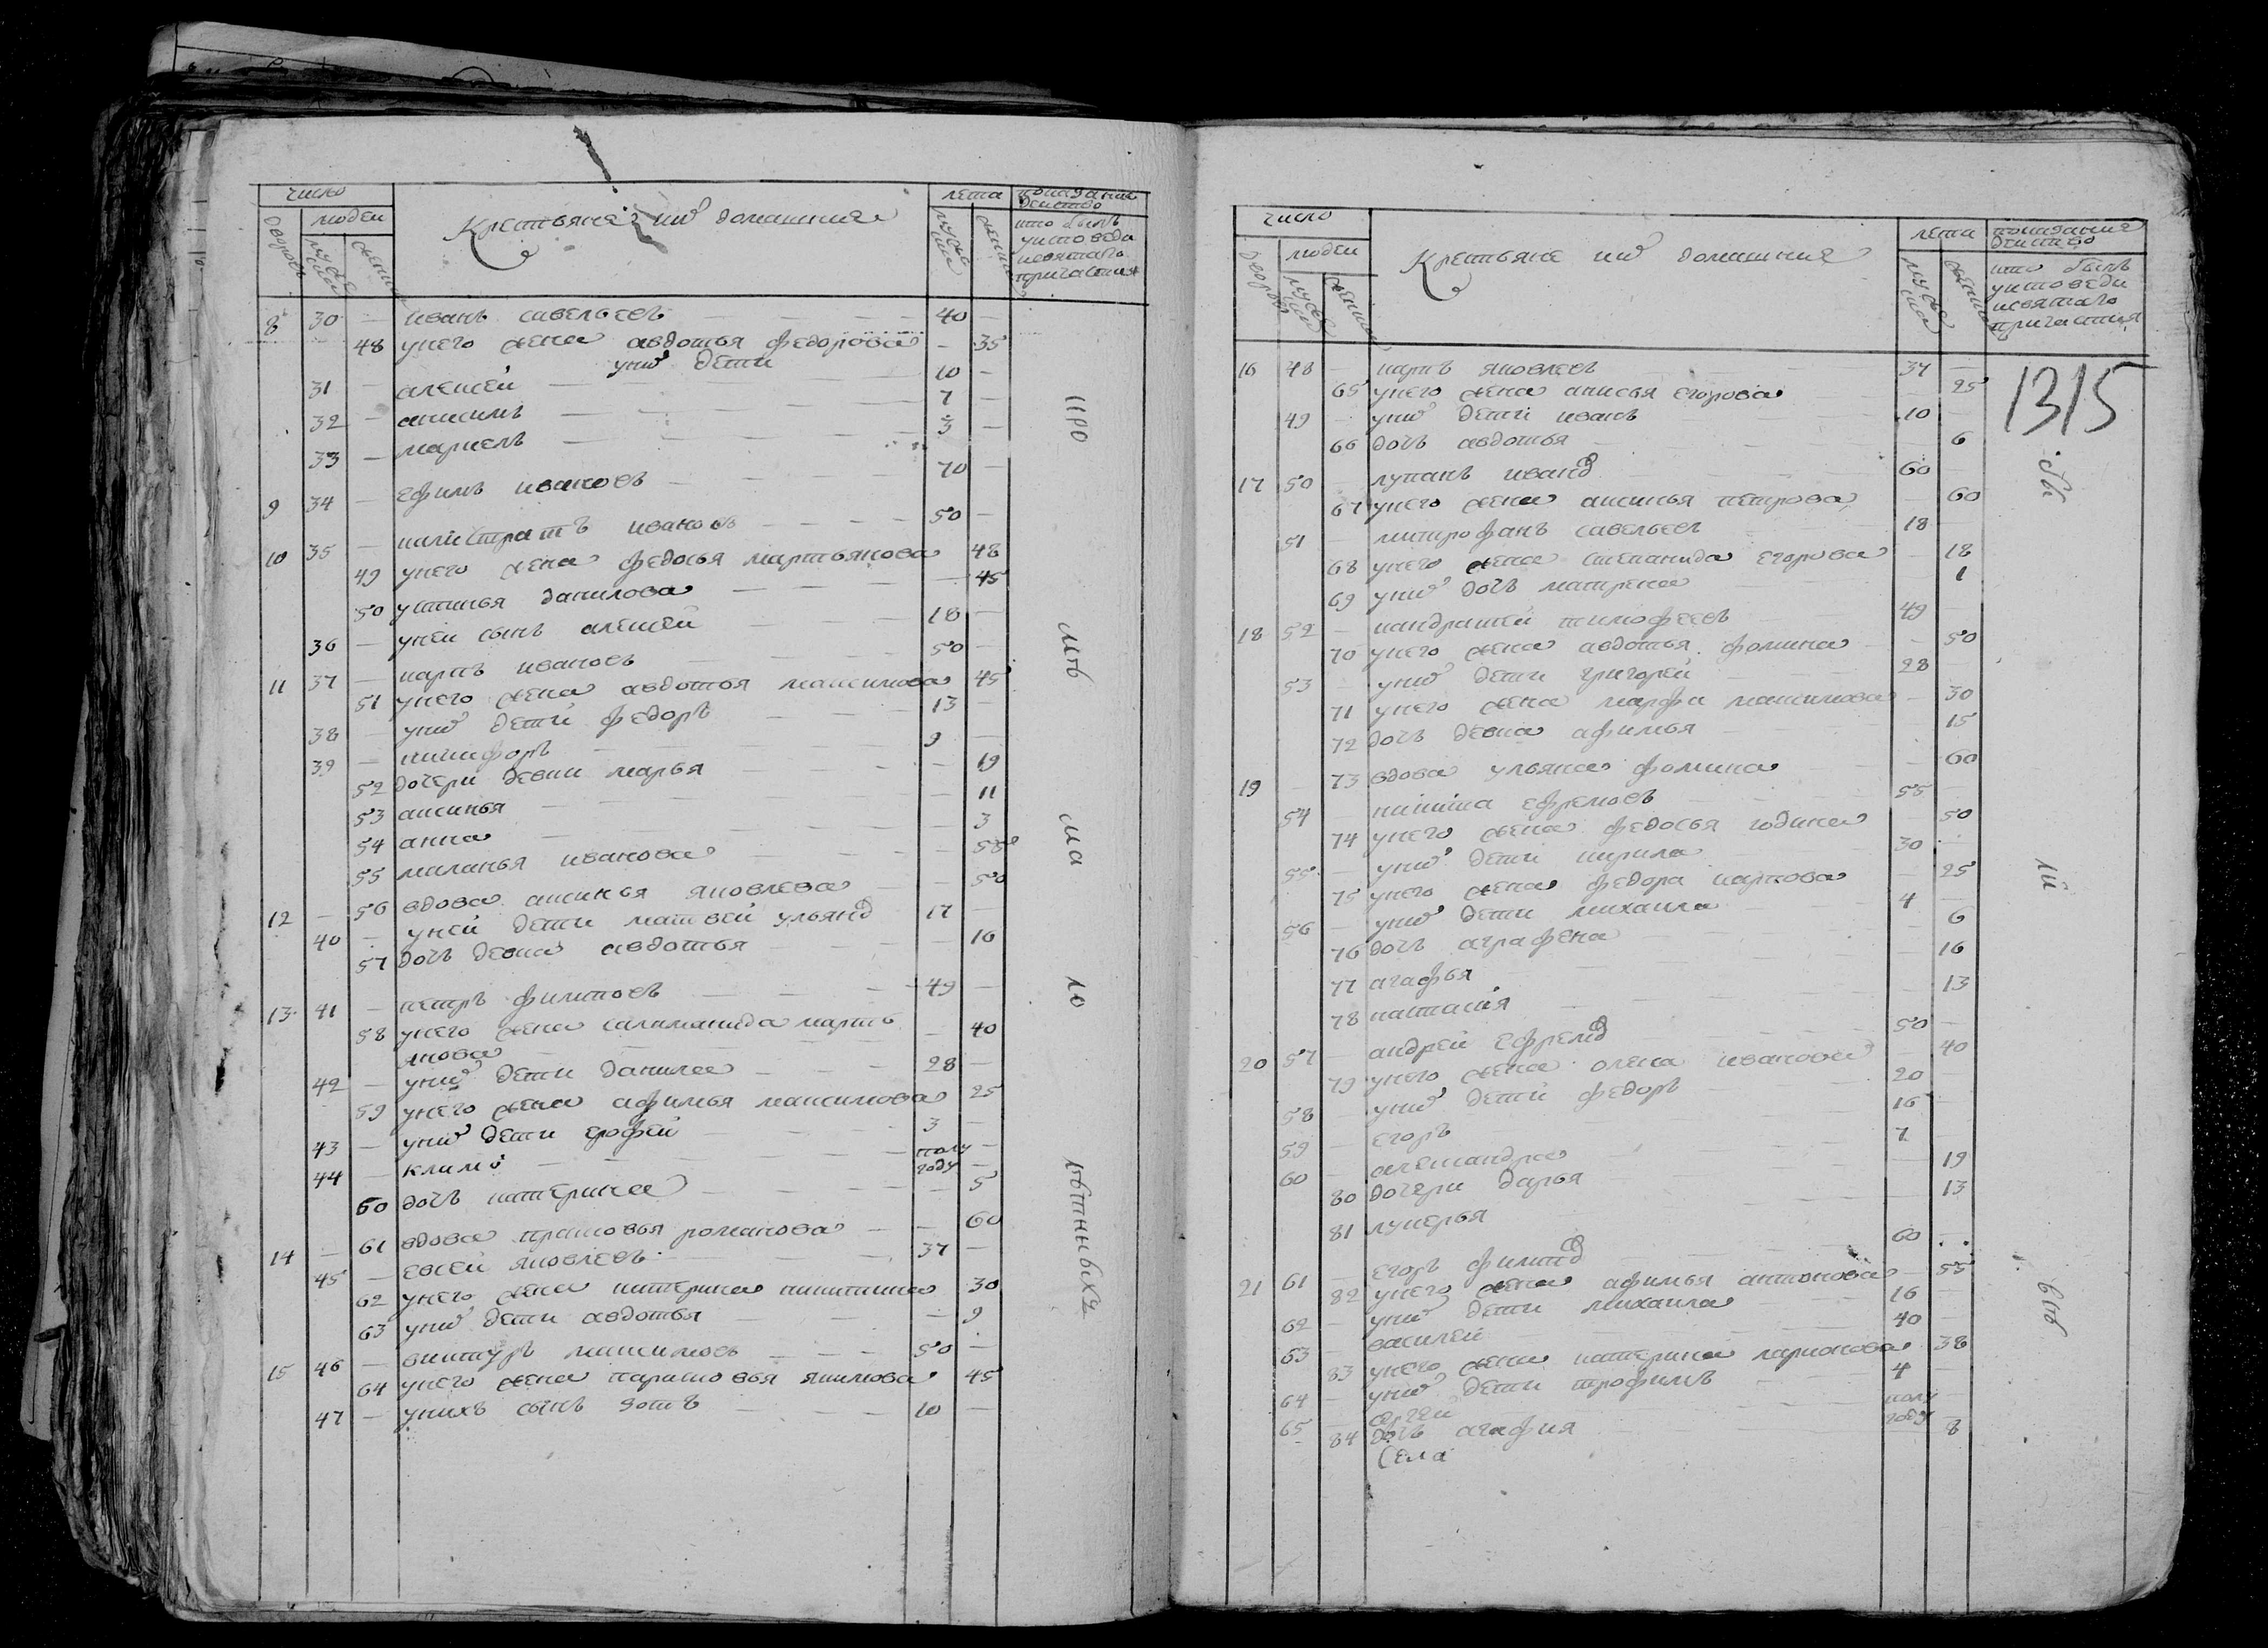 число
людей
дворовъ
мужеска
женска
Крестьяне ихъ домашния
лета
мужеска
женска
показание действо
кто былъ у исповеди и святаго причастия
8 30 — иванъ савельевъ 40 —
48 у него жена авдотья федорова — 35
у ихъ дети
31 — алексей 10 —
32 — анисимъ 7 —
33 — маркелъ 3 —
9 34 — ефимъ ивановъ 70 —
10 35 — калистратъ ивановъ 50 —
49 у него жена федосья мартьянова 48
50 устинья данилова — 45
36 — у ней сынъ алексей 18 —
11 37 — карпъ ивановъ 50 —
51 у него жена авдотья максимова 45
38 — у ихъ дети федоръ 13 —
39 — никифоръ 9 —
52 дочери девки марья — 19
53 аксинья — 11
54 анна — 3
55 маланья иванова — 58
12 — 56 вдова аксинья яковлева — 50
40 — у ней дети матвей ульянъ 17 —
57 дочь девка авдотья — 16
13 41 — петръ филиповъ 49 —
58 у него жена саламанида мартьянова — 40
42 — у ихъ дети данила 28 —
59 у него жена афимья максимова 25
43 — у ихъ дети ерофей 3 —
44 — климъ полу году —
60 дочь катерина — 5
14 — 61 вдова прасковья романова — 60
45 — евсей яковлевъ 37 —
62 у него жена катерина никитина 30
63 у ихъ дети авдотья — 9
15 46 — викту́ръ максимовъ 50 —
64 у него жена парасковья якимова 45
47 — у нихъ сынъ зотъ 10 —
про
мъ
ма
ю
число
людей
дворовъ
мужеска
женска
Крестьяне ихъ домашния
лета
мужеска
женска
показание действо
кто былъ у исповеди и святаго причастия
1315
16 48 — карпъ яковлевъ 37 —
65 у него жена анисья егорова — 25
49 — у ихъ дети иванъ 10 —
66 дочь авдотья 6
17 50 — лупанъ иванов 60 —
67 у него жена аксинья петрова — 60
51 — митрофанъ савельевъ 18
68 у него жена степанида егорова — 18
69 у ихъ дочь матрена 1
18 52 — кандратей тимофеевъ 49
70 у него жена авдотья фомина — 50
53 — у ихъ дети григорей 28
71 у него жена марфа максимова — 30
72 дочь девка афимья 15
19 — 73 вдова ульяна фомина — 60
54 — никита ефремовъ 55
74 у него жена федосья година — 50
55 — у ихъ дети кирила 30
75 у него жена федора карпова — 25
56 — у ихъ дети михаила 4 —
76 дочь аграфена — 6
77 агафья — 16
78 настасия — 13
20 57 — андрей ефремов 50 —
79 у него жена олена иванова — 40
58 у ихъ дети федоръ 20 —
59 — егоръ 16 —
60 — александра 7
80 дочери дарья — 19
81 лукерья — 13
21 61 — егоръ филипов 60
82 у него жена афимья антонова — 55
62 — у ихъ дети михаила 16 —
63 — василей 40 —
83 у него жена катерина ларионова 38
64 — у ихъ дети трофимъ 4 —
65 — сергей полу году —
84 дочь агафия 8
Села